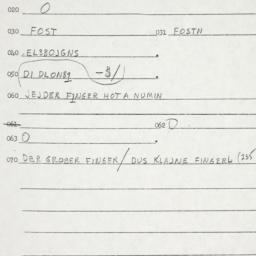 020 O
030 FOST 031 FOSTN
040 .ELSBOJGNS
050 DI DLON81 -$/
060 JEJDER FINGER HOT A NUMIN
061 062 O
063 O
070 DER GROBER FINGER/ DUS KLAJNE FINGERL (235